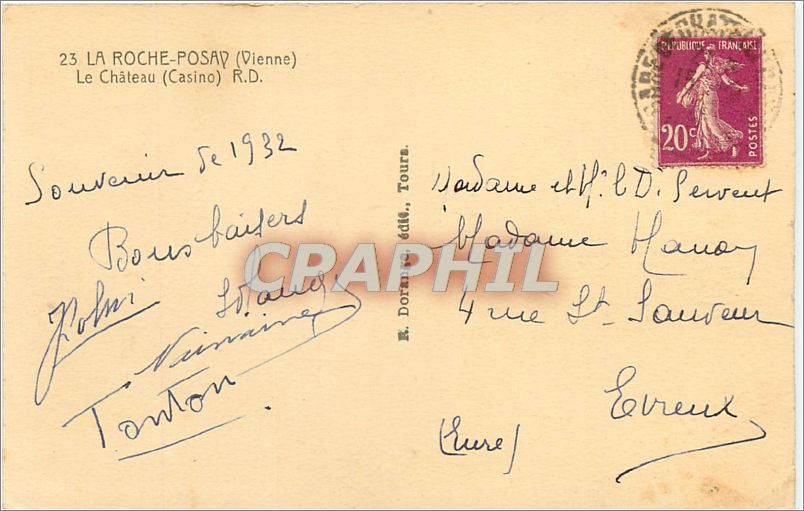 23 LA ROCHE-POSAY (Vienne)
Le Château (Casino) R.D.
RÉPUBLIQUE FRANÇAISE
20c
POSTES
Souvenir de 1932
Bons baisers
Tonton
R. Dorange, édit., Tours.
Madame et Mr le Dr
Madame
4 rue St. Sauveur
Evreux
(Eure)
CPAPHIL